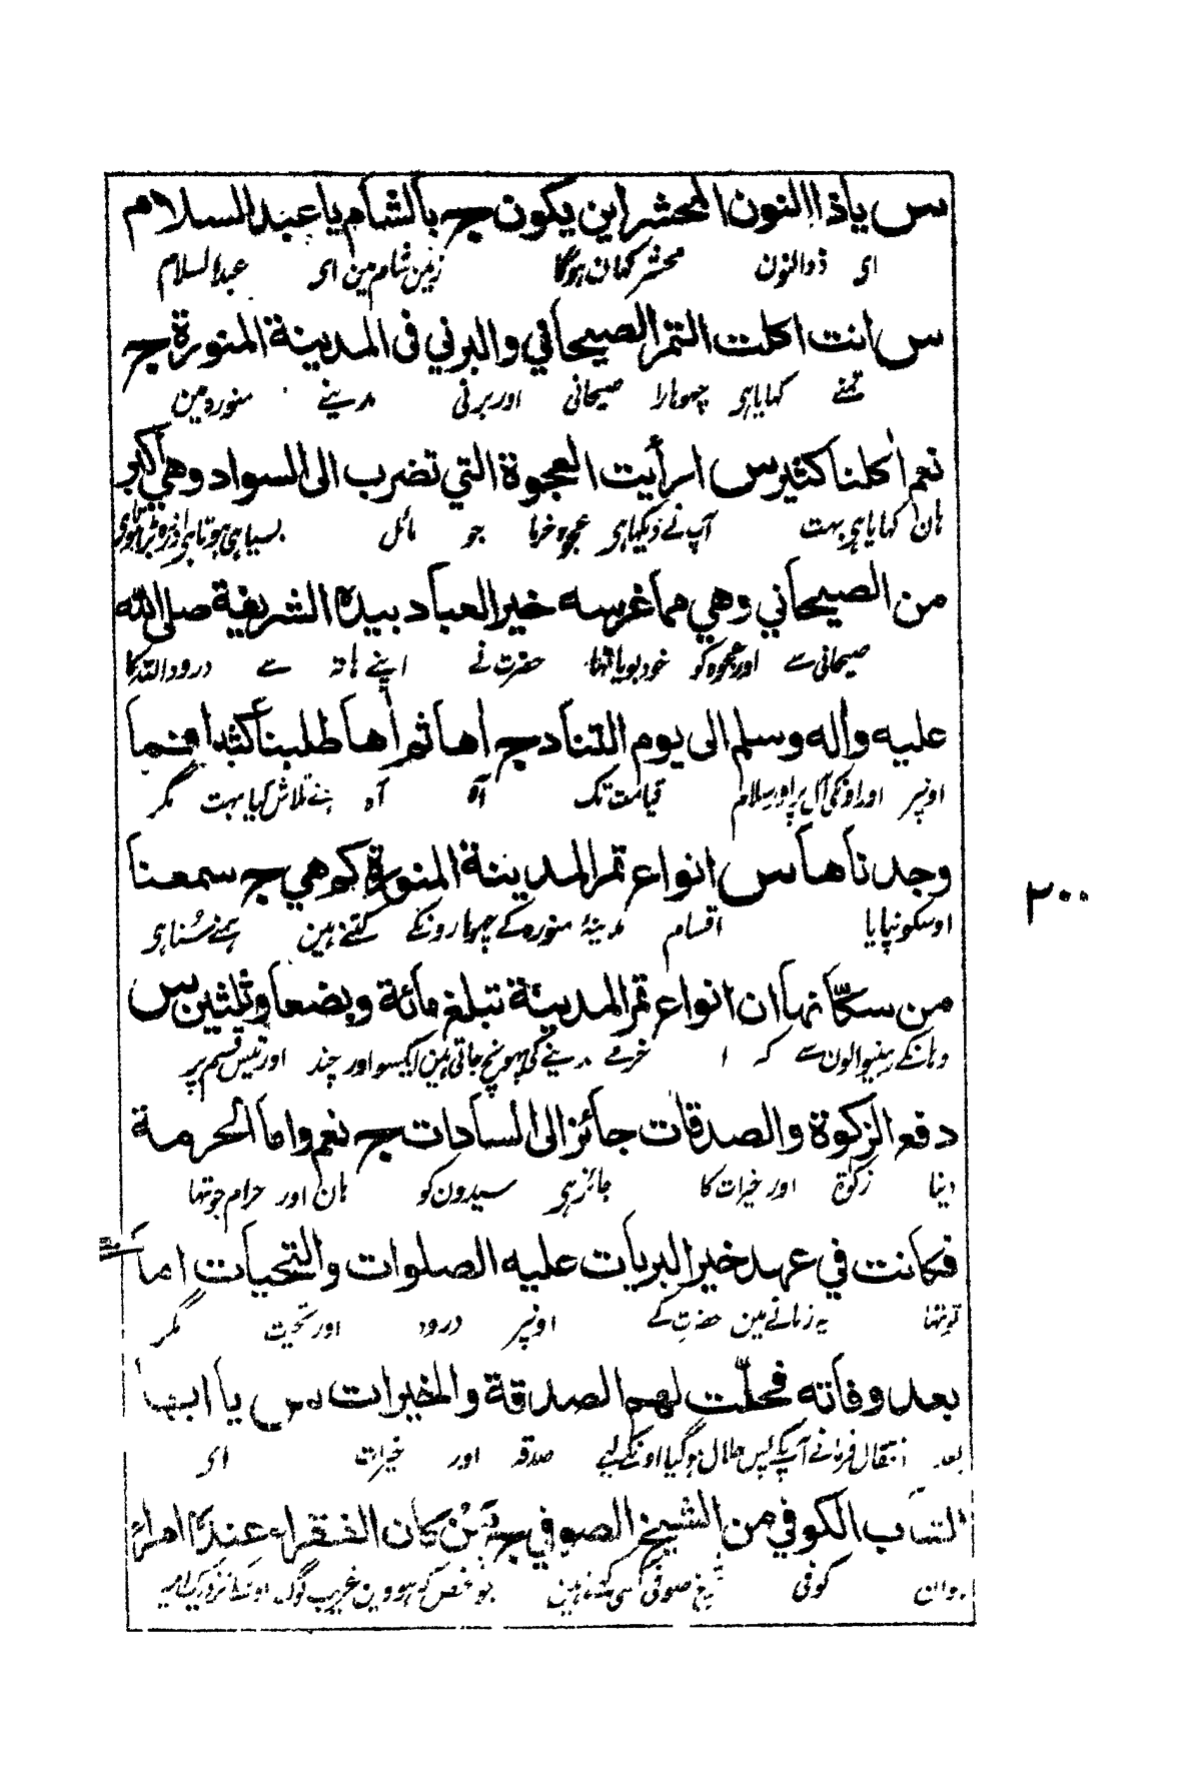 س ياذا النون المحشر اين يكون ج بالشام يا عبد السلام
ای ذوالنون محشر کہان ہوگا زمین شام مین ای عبدالسلام
س انت اكلت التمر الصيحاني والبرني فى المدينة المنورة ج
تمنے کہایاہی چھوہارا صیحانی اور برنی مدینے منورہ مین
نعم اكلنا كثير س ارأيت العجوة التي تضرب الى السواد وهي أكبر
ہان کہایاہی بہت آپ نے دیکہاہی عجوہ خرما جو مائل بسیاہی ہوتاہی
من الصيحاني وهي مما غرسه خير العباد بيده الشريفة صلى الله
صیحانی سے اور عجوہ کو خود بویا تہا حضرت نے اپنے ہاتہ سے درود اللہ کا
عليه واله وسلم الى يوم التناد ج اها ثم أها طلبنا كثيرا فما
اونپر اور اونکی آل پر اور سلام قیامت تک آہ آہ ہنے تلاش کیا بہت مگر
وجدناها س انواع تمر المدينة المنورة كم هي ج سمعنا
اوسکو نپایا اقسام مدینۂ منورہ کے چھوہارونکے کتنے ہین ہمنے سُنا ہی
من سكّانها ان انواع تمر المدينة تبلغ مائة وبضعا وثلثين س
وہانکے رہنیوالون سے کہ ا خرمے مدینے کی پہونچ جاتی ہین ایکسو اور چند اور تیس قسم پر
دفع الزكوة والصدقات جائز الى السادات ج نعم واما الحرمة
دینا زکوۃ اور خیرات کا جائز ہی سیدون کو ہان اور حرام جو تہا
فكانت في عهد خير البريات عليه الصلوات والتحيات اما
تو تہا یہ زمانے مین حضرت کے اونپر درود اور تحیت مگر
بعد وفاته فحلّت لهم الصدقة والخيرات س يا ايها
بعد انتقال فرمانے آپکے پس حلال ہوگیا اونکے لیے صدقہ اور خیرات ای
الشاب الكوفي من الشيخ الصوفي ج مَن كان الفقراء عنده امراء
جوان کوفی شیخ صوفی کسی کہتے ہین جو شخص کہ ہووین غریب لوگ اوسکے نزدیک امیر
٢٠٠